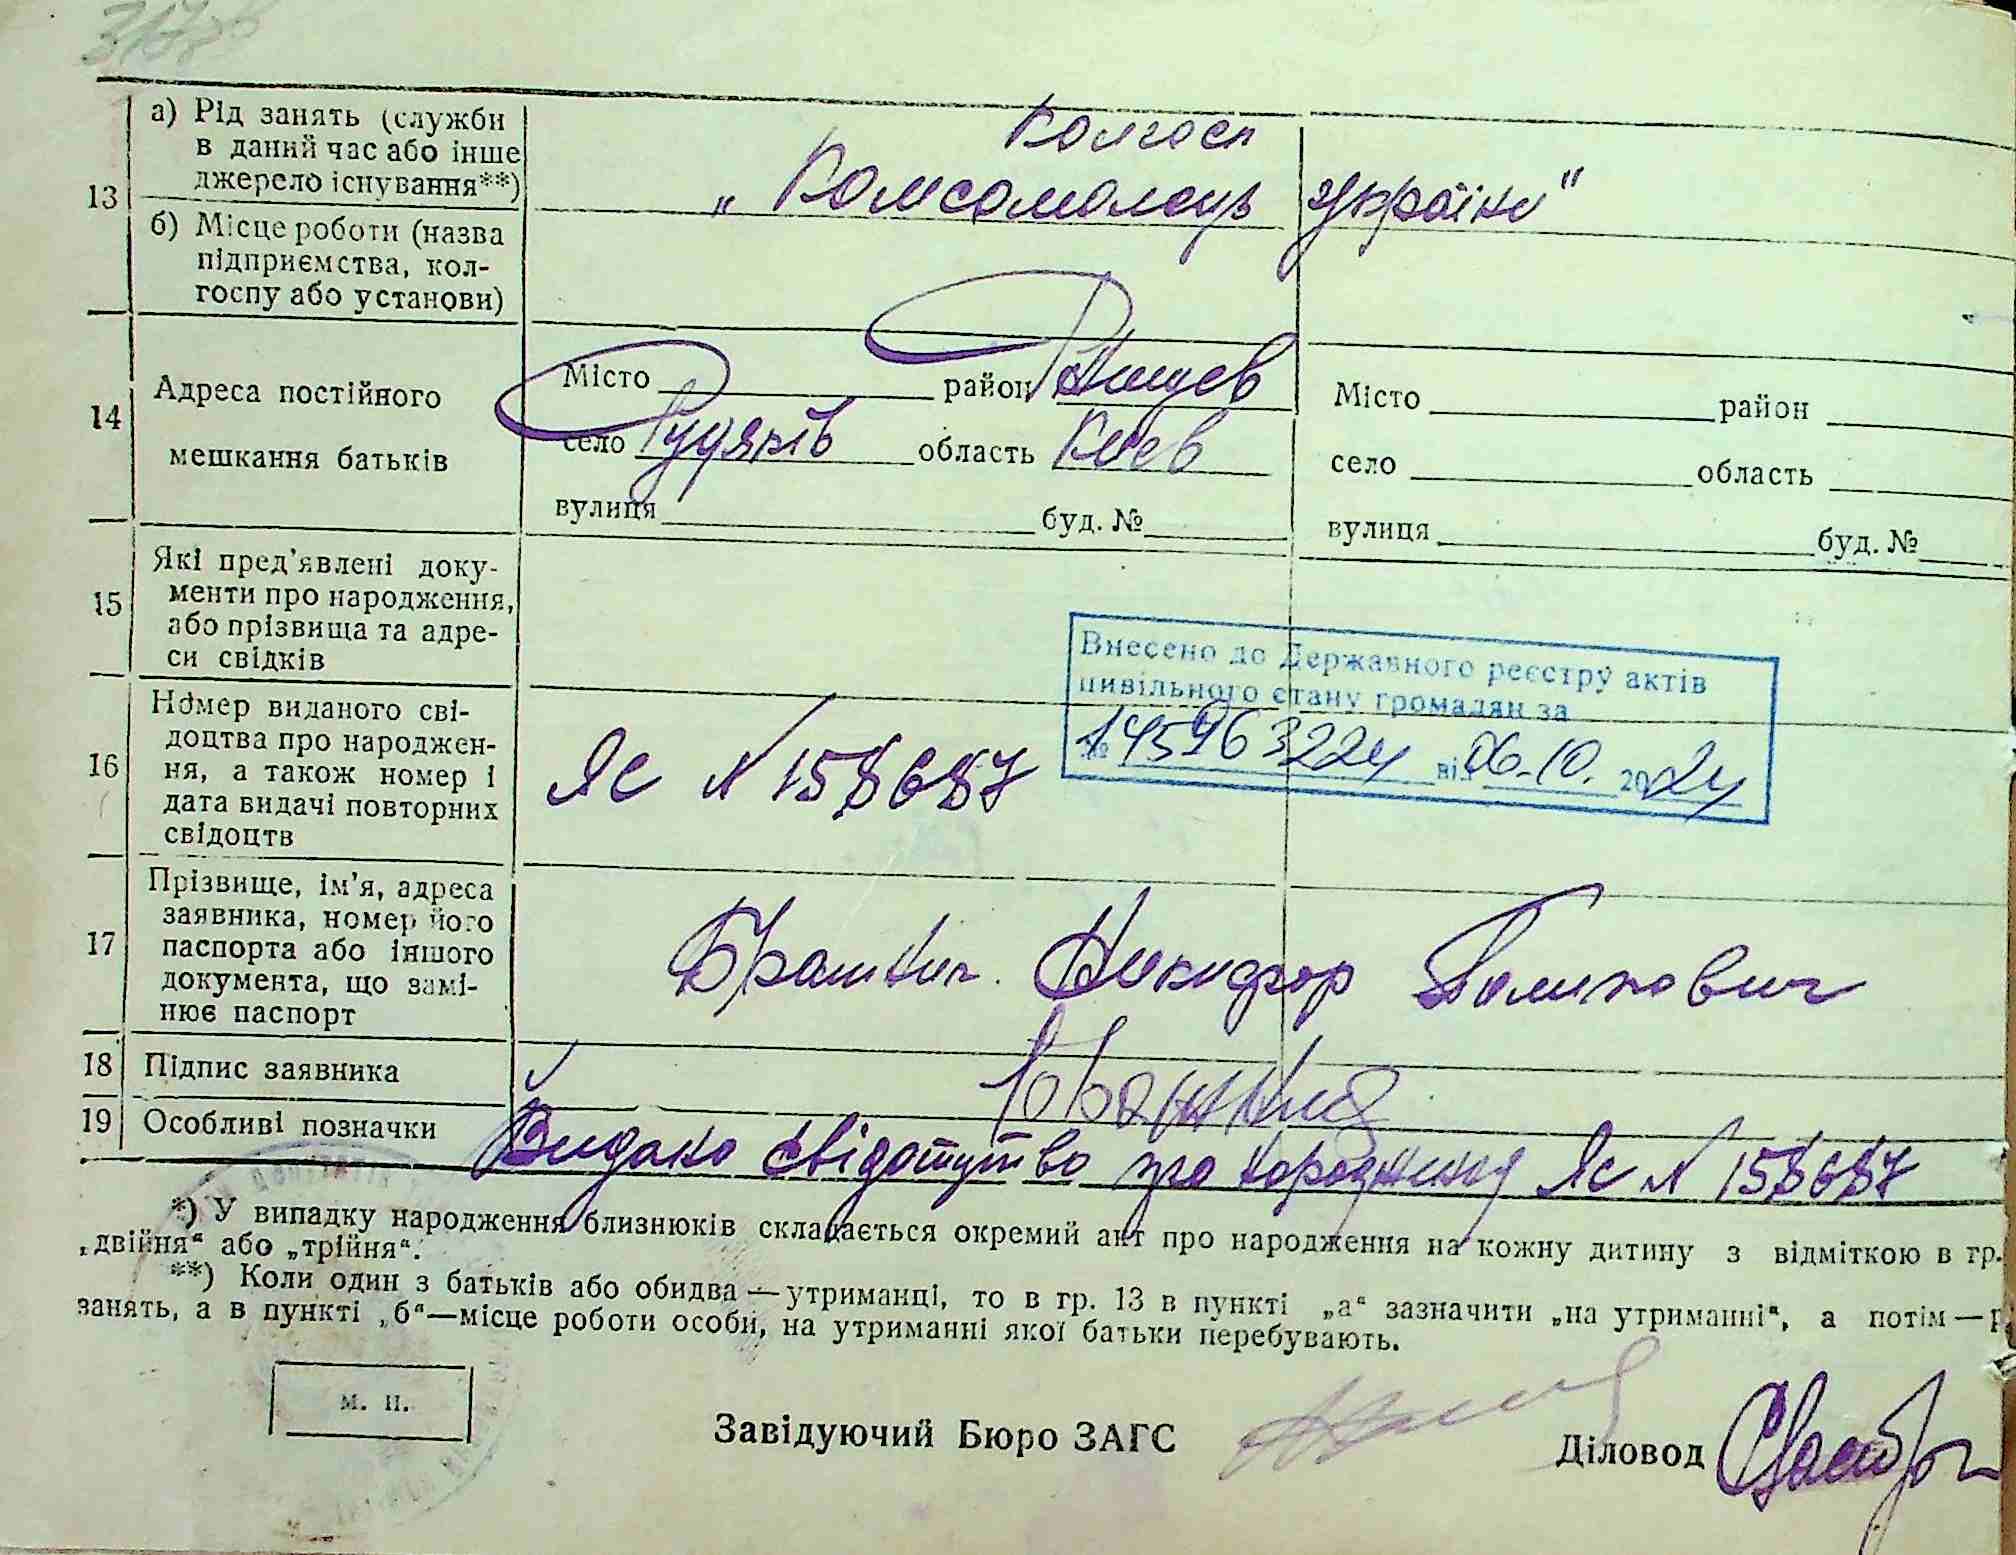 13
а) Рід занять (служби
в даний час або інше
джерело існування**)
колгосп
„Комсомолець України"
б) Місце роботи (назва
підприємства, кол-
госпу або установи)
14
Адреса постійного
мешкання батьків
Місто район Ржищев
село Рудяків область Киев
вулиця буд. №
Місто район
село область
вулиця буд. №
15
Які пред'явлені доку-
менти про народження,
або прізвища та адре-
си свідків
Внесено до Державного реєстру актів
цивільного стану громадян за
№ 145963224 від 06.10. 2024
16
Номер виданого сві-
доцтва про народжен-
ня, а також номер і
дата видачі повторних
свідоцтв
ЯС № 158687
17
Прізвище, ім'я, адреса
заявника, номер його
паспорта або іншого
документа, що замі-
нює паспорт
Никифор
18 Підпис заявника
19 Особливі позначки
Видано свідотцтво про народження ЯС № 158687
*) У випадку народження близнюків складається окремий акт про народження на кожну дитину з відміткою в гр.
„двійня“ або „трійня“.
**) Коли один з батьків або обидва—утриманці, то в гр. 13 в пункті „а“ зазначити „на утриманні“, а потім—р
занять, а в пункті „б“—місце роботи особи, на утриманні якої батьки перебувають.
м. п.
Завідуючий Бюро ЗАГС
Діловод